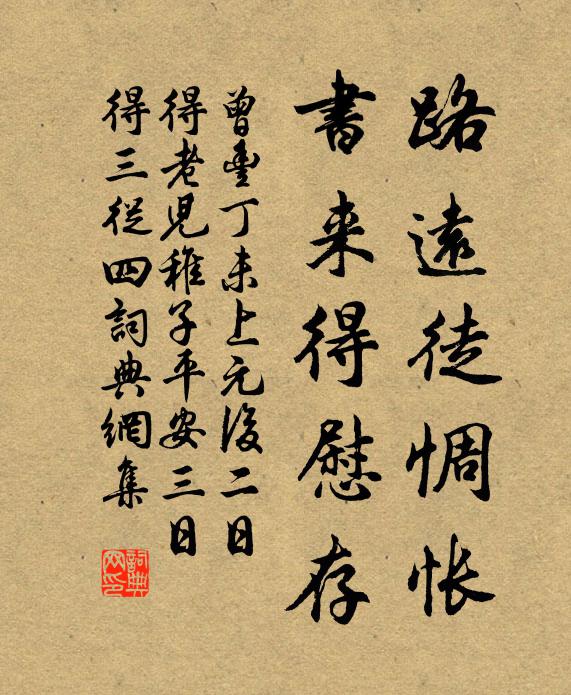 路遠徒惆怅
書来得慰存
曾豊丁未上元後二日
得老児稚子平安三日
得三從四詞典網集
詞典网印